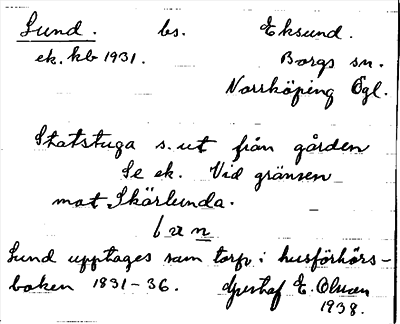 Lund. bs. Eksund.
ek. kb 1931. Borgs sn.
Norrköping Ögl.
Statstuga s. ut från gården
Se ek. Vid gränsen
mot Skärlunda.
Lund upptages som torp i husförhörs-
boken 1831-36. Gustaf E. Olsson
1938.